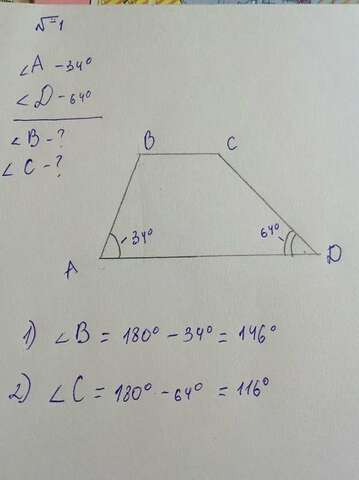 №1
∠A - 34°
∠D - 64°
∠B - ?
∠C - ?
B C
34° 64°
A D
1) ∠B = 180° - 34° = 146°
2) ∠C = 180° - 64° = 116°